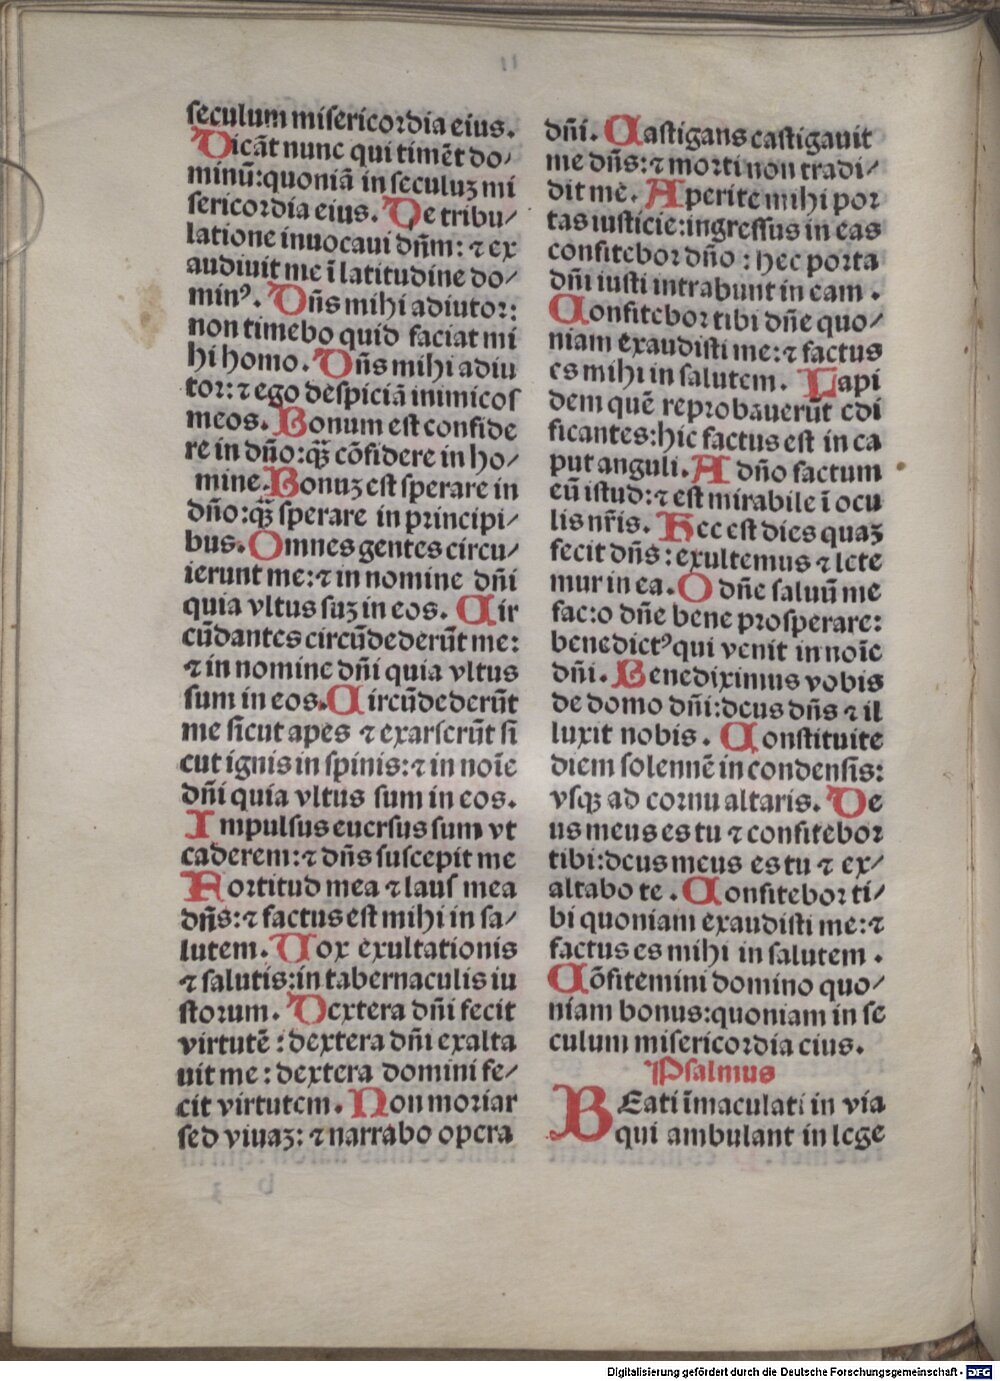 seculum misericordia eius.
Dicāt nunc qui timēt do/
minū:quoniā in seculuȝ mi
sericordia eius. De tribu/
latione inuocaui dn̄m: ⁊ ex
audiuit me ī latitudine do/
minꝰ. Dn̄s mihi adiutor:
non timebo quid faciat mi
hi homo. Dn̄s mihi adiu
tor: ⁊ ego despiciā inimicos
meos. Bonum est confide
re in dn̄o:qꝫ̄ cōfidere in ho/
mine. Bonuȝ est sperare in
dn̄o:qꝫ̄ sperare in principi/
bus. Omnes gentes circu/
ierunt me: ⁊ in nomine dn̄i
quia vltus suȝ in eos. Cir
cūdantes circūdederūt me:
⁊ in nomine dn̄i quia vltus
sum in eos. Circūdederūt
me sicut apes ⁊ exarserūt si
cut ignis in spinis: ⁊ in noīe
dn̄i quia vltus sum in eos.
Impulsus euersus sum vt
caderem: ⁊ dn̄s suscepit me
Fortitud mea ⁊ laus mea
dn̄s: ⁊ factus est mihi in sa/
lutem. Uox exultationis
⁊ salutis:in tabernaculis iu
storum. Dextera dn̄i fecit
virtutē : dextera dn̄i exalta
uit me : dextera domini fe/
cit virtutem. Non moriar
sed viuaȝ: ⁊ narrabo opera
dn̄i. Castigans castigauit
me dn̄s: ⁊ morti non tradi/
dit me. Aperite mihi por
tas iusticie:ingressus in eas
confitebor dn̄o : hec porta
dn̄i iusti intrabunt in eam .
Confitebor tibi dn̄e quo/
niam exaudisti me: ⁊ factus
es mihi in salutem. Lapi
dem quē reprobauerūt edi
ficantes:hic factus est in ca
put anguli. A dn̄o factum
eū istud: ⁊ est mirabile ī ocu
lis nr̄is. Hec est dies quaȝ
fecit dn̄s : exultemus ⁊ lete
mur in ea. O dn̄e saluū me
fac:o dn̄e bene prosperare:
benedictꝰ qui venit in noīe
dn̄i. Benediximus vobis
de domo dn̄i:deus dn̄s ⁊ il
luxit nobis . Constituite
diem solennē in condensis:
vsqꝫ ad cornu altaris. De
us meus es tu ⁊ confitebor
tibi:deus meus es tu ⁊ ex/
altabo te . Confitebor ti/
bi quoniam exaudisti me: ⁊
factus es mihi in salutem .
Cōfitemini domino quo/
niam bonus:quoniam in se
culum misericordia eius.
Psalmus
BEati īmaculati in via
qui ambulant in lege
Digitalisierung gefördert durch die Deutsche Forschungsgemeinschaft - DFG